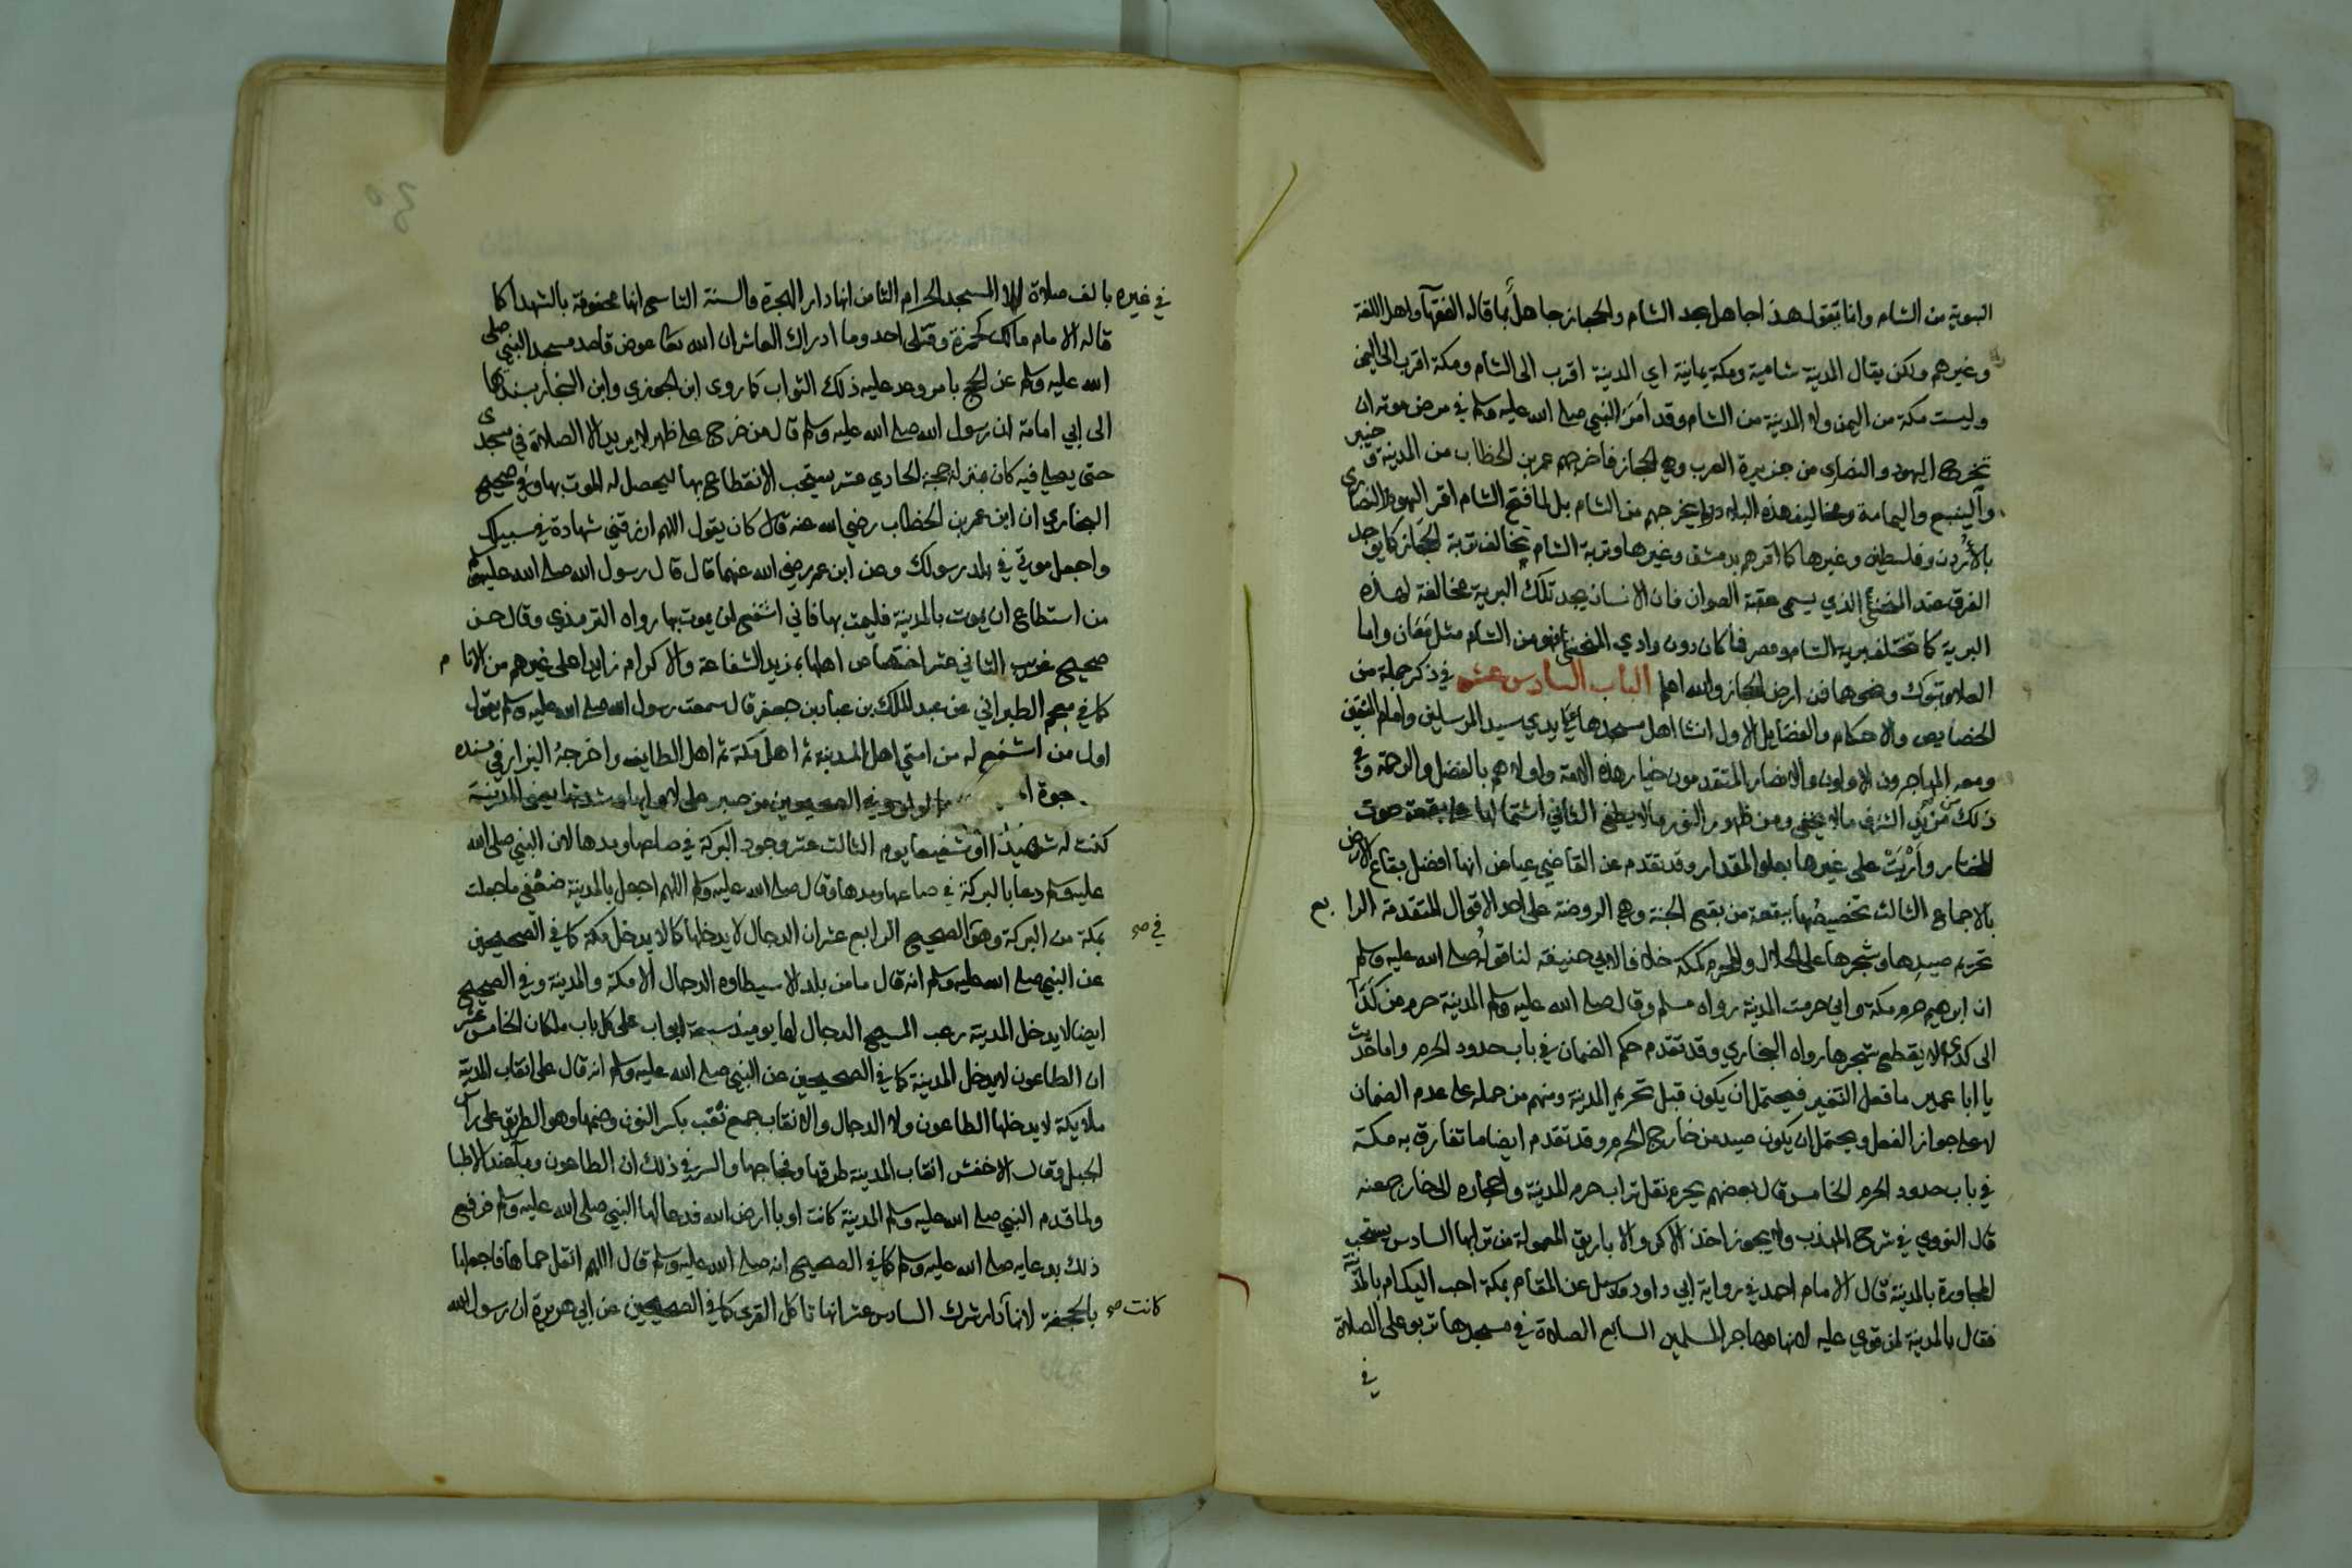 النبوية من الشام وانما يقول هذا جاهل بحد الشام والحجاز جاهل بما قاله الفقهآ واهل اللغة
وغيرهم ولكن يقال المدينة شامية ومكة يمانية اي المدينة اقرب الى الشام ومكة اقرب الى اليمن
وليست مكة من اليمن ولا المدينة من الشام وقد امر النبي صلى الله عليه وسلم في مرض موته ان
تخرج اليهود والنصارى من جزيرة العرب وهي الحجاز فاخرجهم عمر بن الخطاب من المدينة وخيبر
والينبع واليمامة ومخاليف هذه البلاد ولم يخرجهم من الشام بل لما فتح الشام اقر اليهود والنصارى
بالأردن وفلسطين وغيرها كما اقرهم بدمشق وغيرها وتربة الشام تخالف تربة الحجاز كما يوجد
الفرق عند المنحنى الذي يسمى عقبة الصوان فان الانسان يجد تلك البرية مخالفة لهذه
البرية كما تختلف برية الشام ومصر فما كان دون وادي المنحنى فهو من الشام مثل معان واما
العلا وتبوك ونحوها فمن ارض الحجاز والله اعلم الباب السادس عشر في ذكر جملة من
الخصايص والاحكام والفضايل الاول انشا اهل مسجدها على يدي سيد المرسلين وامام المتقين
ومعه المهاجرون الاولون والانصار المتقدمون خيار هذه الامة واولاهم بالفضل والرحمة وفي
ذلك من مزيد الشرف ما لا يخفى ومن ظهور النور ما لا يطفى الثاني اشتمالها على بقعة حوت
المختار واربت على غيرها بعلو المقدار وقد تقدم عن القاضي عياض انها افضل بقاع الارض
بالاجماع الثالث تخصيصها ببقعة من بقع الجنة وهي الروضة على احد الاقوال المتقدمة الرابع
تحريم صيدها وشجرها على الحلال والمحرم كمكة خلافا لابي حنيفة لنا قوله صلى الله عليه وسلم
ان ابرهيم حرم مكة واني حرمت المدينة رواه مسلم وقال صلى الله عليه وسلم المدينة حرم من كدا
الى كدى لا يقطع شجرها رواه البخاري وقد تقدم حكم الضمان في باب حدود الحرم واما حديث
يا ابا عمير ما فعل النغير فيحتمل ان يكون قبل تحريم المدينة ومنهم من حمله على عدم الضمان
لا على جواز الفعل ويحتمل ان يكون صيد من خارج الحرم وقد تقدم ايضا ما تفارق به مكة
في باب حدود الحرم الخامس قال بعضهم يحرم نقل تراب حرم المدينة واحجاره الى خارج عنه
قال النووي في شرح المهذب ولا يجوز اخذ الاكر والاباريق المعمولة من ترابها السادس يستحب
المجاورة بالمدينة قال الامام احمد في رواية ابي داود وسيل عن المقام بمكة احب اليكم ام بالمدينة
فقال بالمدينة لمن قوي عليه لانها مهاجر المسلمين السابع الصلاة في مسجدها تربو على الصلاة
في
في غيره بالف صلاة الا المسجد الحرام الثامن انها دار الهجرة والسنة التاسع انها محفوفة بالشهدا كما
قاله الامام مالك كحمزة وقتلى احد وما ادراك العاشر ان الله تعالى عوض قاصد مسجد النبي صلى
الله عليه وسلم عن الحج بامر وعد عليه ذلك الثواب كما روى ابن الجوزي وابن النجار بسندهما
الى ابي امامة ان رسول الله صلى الله عليه وسلم قال من خرج على طهر لا يريد الا الصلاة في مسجدي
حتى يصلي فيه كان بمنزلة حجة الحادي عشر يستحب الانقطاع بها ليحصل له الموت بها وفي صحيح
البخاري ان ابن عمر بن الخطاب رضي الله عنه قال كان يقول اللهم ارزقني شهادة في سبيلك
واجعل موتي في بلد رسولك وعن ابن عمر رضي الله عنهما قال قال رسول الله صلى الله عليه وسلم
من استطاع ان يموت بالمدينة فليمت بها فاني اشفع لمن يموت بها رواه الترمذي وقال حسن
صحيح غريب الثاني عشر اختصاص اهلها بمزيد الشفاعة والاكرام زايدا على غيرهم من الانام
كما في معجم الطبراني عن عبد الملك بن عباد بن جعفر قال سمعت رسول الله صلى الله عليه وسلم يقول
اول من اشفع له من امتي اهل المدينة ثم اهل مكة ثم اهل الطايف واخرجه البزار في مسنده
الصحيحين من صبر على لاوايها وشدتها يعني المدينة
كنت له شهيدا او شفيعا يوم الثالث عشر وجود البركة في صاعها ومدها لان النبي صلى الله
عليه وسلم دعا بالبركة في صاعها ومدها وقال صلى الله عليه وسلم اللهم اجعل بالمدينة ضعفي ما جعلت
بمكة من البركة وهو في الصحيح الرابع عشر ان الدجال لا يدخلها كما لا يدخل مكة كما في الصحيحين
عن النبي صلى الله عليه وسلم انه قال ما من بلد الا سيطاوه الدجال الا مكة والمدينة وفي الصحيح
ايضا لا يدخل المدينة رعب المسيح الدجال لها يوميذ سبعة ابواب على كل باب ملكان الخامس عشر
ان الطاعون لا يدخل المدينة كما في الصحيحين عن النبي صلى الله عليه وسلم انه قال على انقاب المدينة
ملايكة لا يدخلها الطاعون ولا الدجال والانقاب جمع نقب بكسر النون وضمها وهو الطريق على راس
الجبل وقال الاخفش انقاب المدينة طرقها وفجاجها والسر في ذلك ان الطاعون وبا عند الاطبا
ولما قدم النبي صلى الله عليه وسلم المدينة كانت اوبا ارض الله فدعا لها النبي صلى الله عليه وسلم فرفع
ذلك بدعايه صلى الله عليه وسلم كما في الصحيح انه صلى الله عليه وسلم قال اللهم انقل حماها فاجعلها
بالجحفة لانها كانت دار شرك السادس عشر انها تاكل القرى كما في الصحيحين عن ابي هريرة ان رسول الله